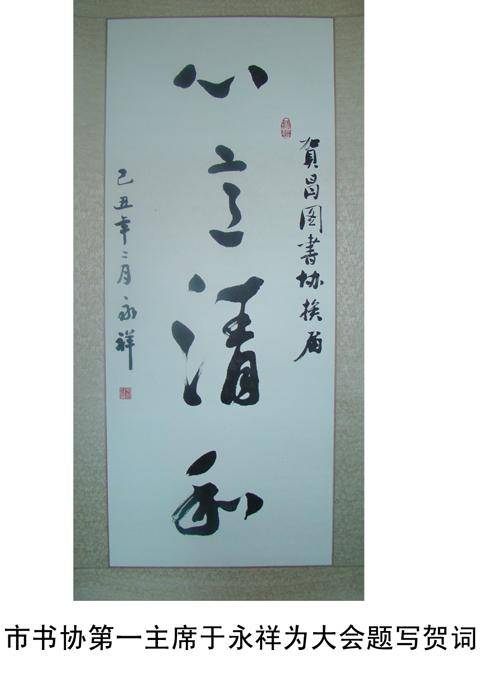 賀昌图書协换届
心清和
己丑年二月永祥
市书协第一主席于永祥为大会题写贺词